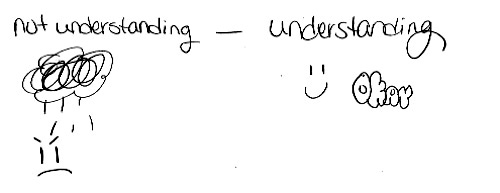 not understanding — understanding
Okay